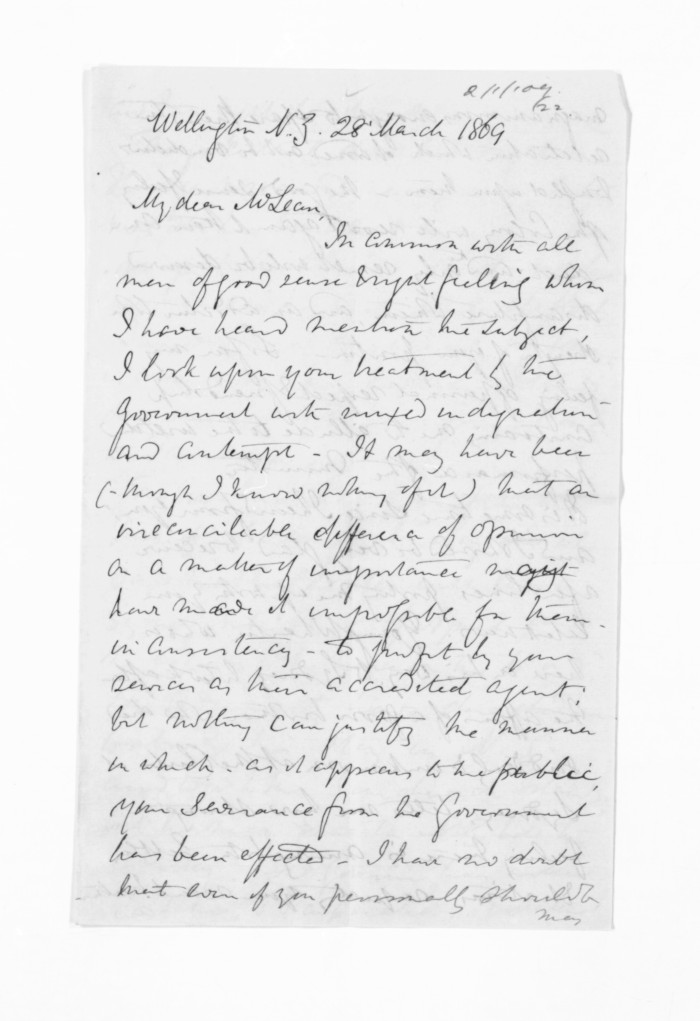 Wellington N.Z. 28 March 1869
My dear McLean,
In common with all
men of good sense & right feeling whom
I have heard mention the subject,
I look upon your treatment by the
Government with mixed indignation
and contempt - It may have been
(- though I know nothing of it) that an
irreconcilable difference of opinion
on a matter of importance might
have made it impossible for them -
in consistency - to profit by your
services as their accredited agent;
but nothing can justify the manner
in which - as it appears to the public,
your severance from the Government
has been effected - I have no doubt
that even if you personally should
may